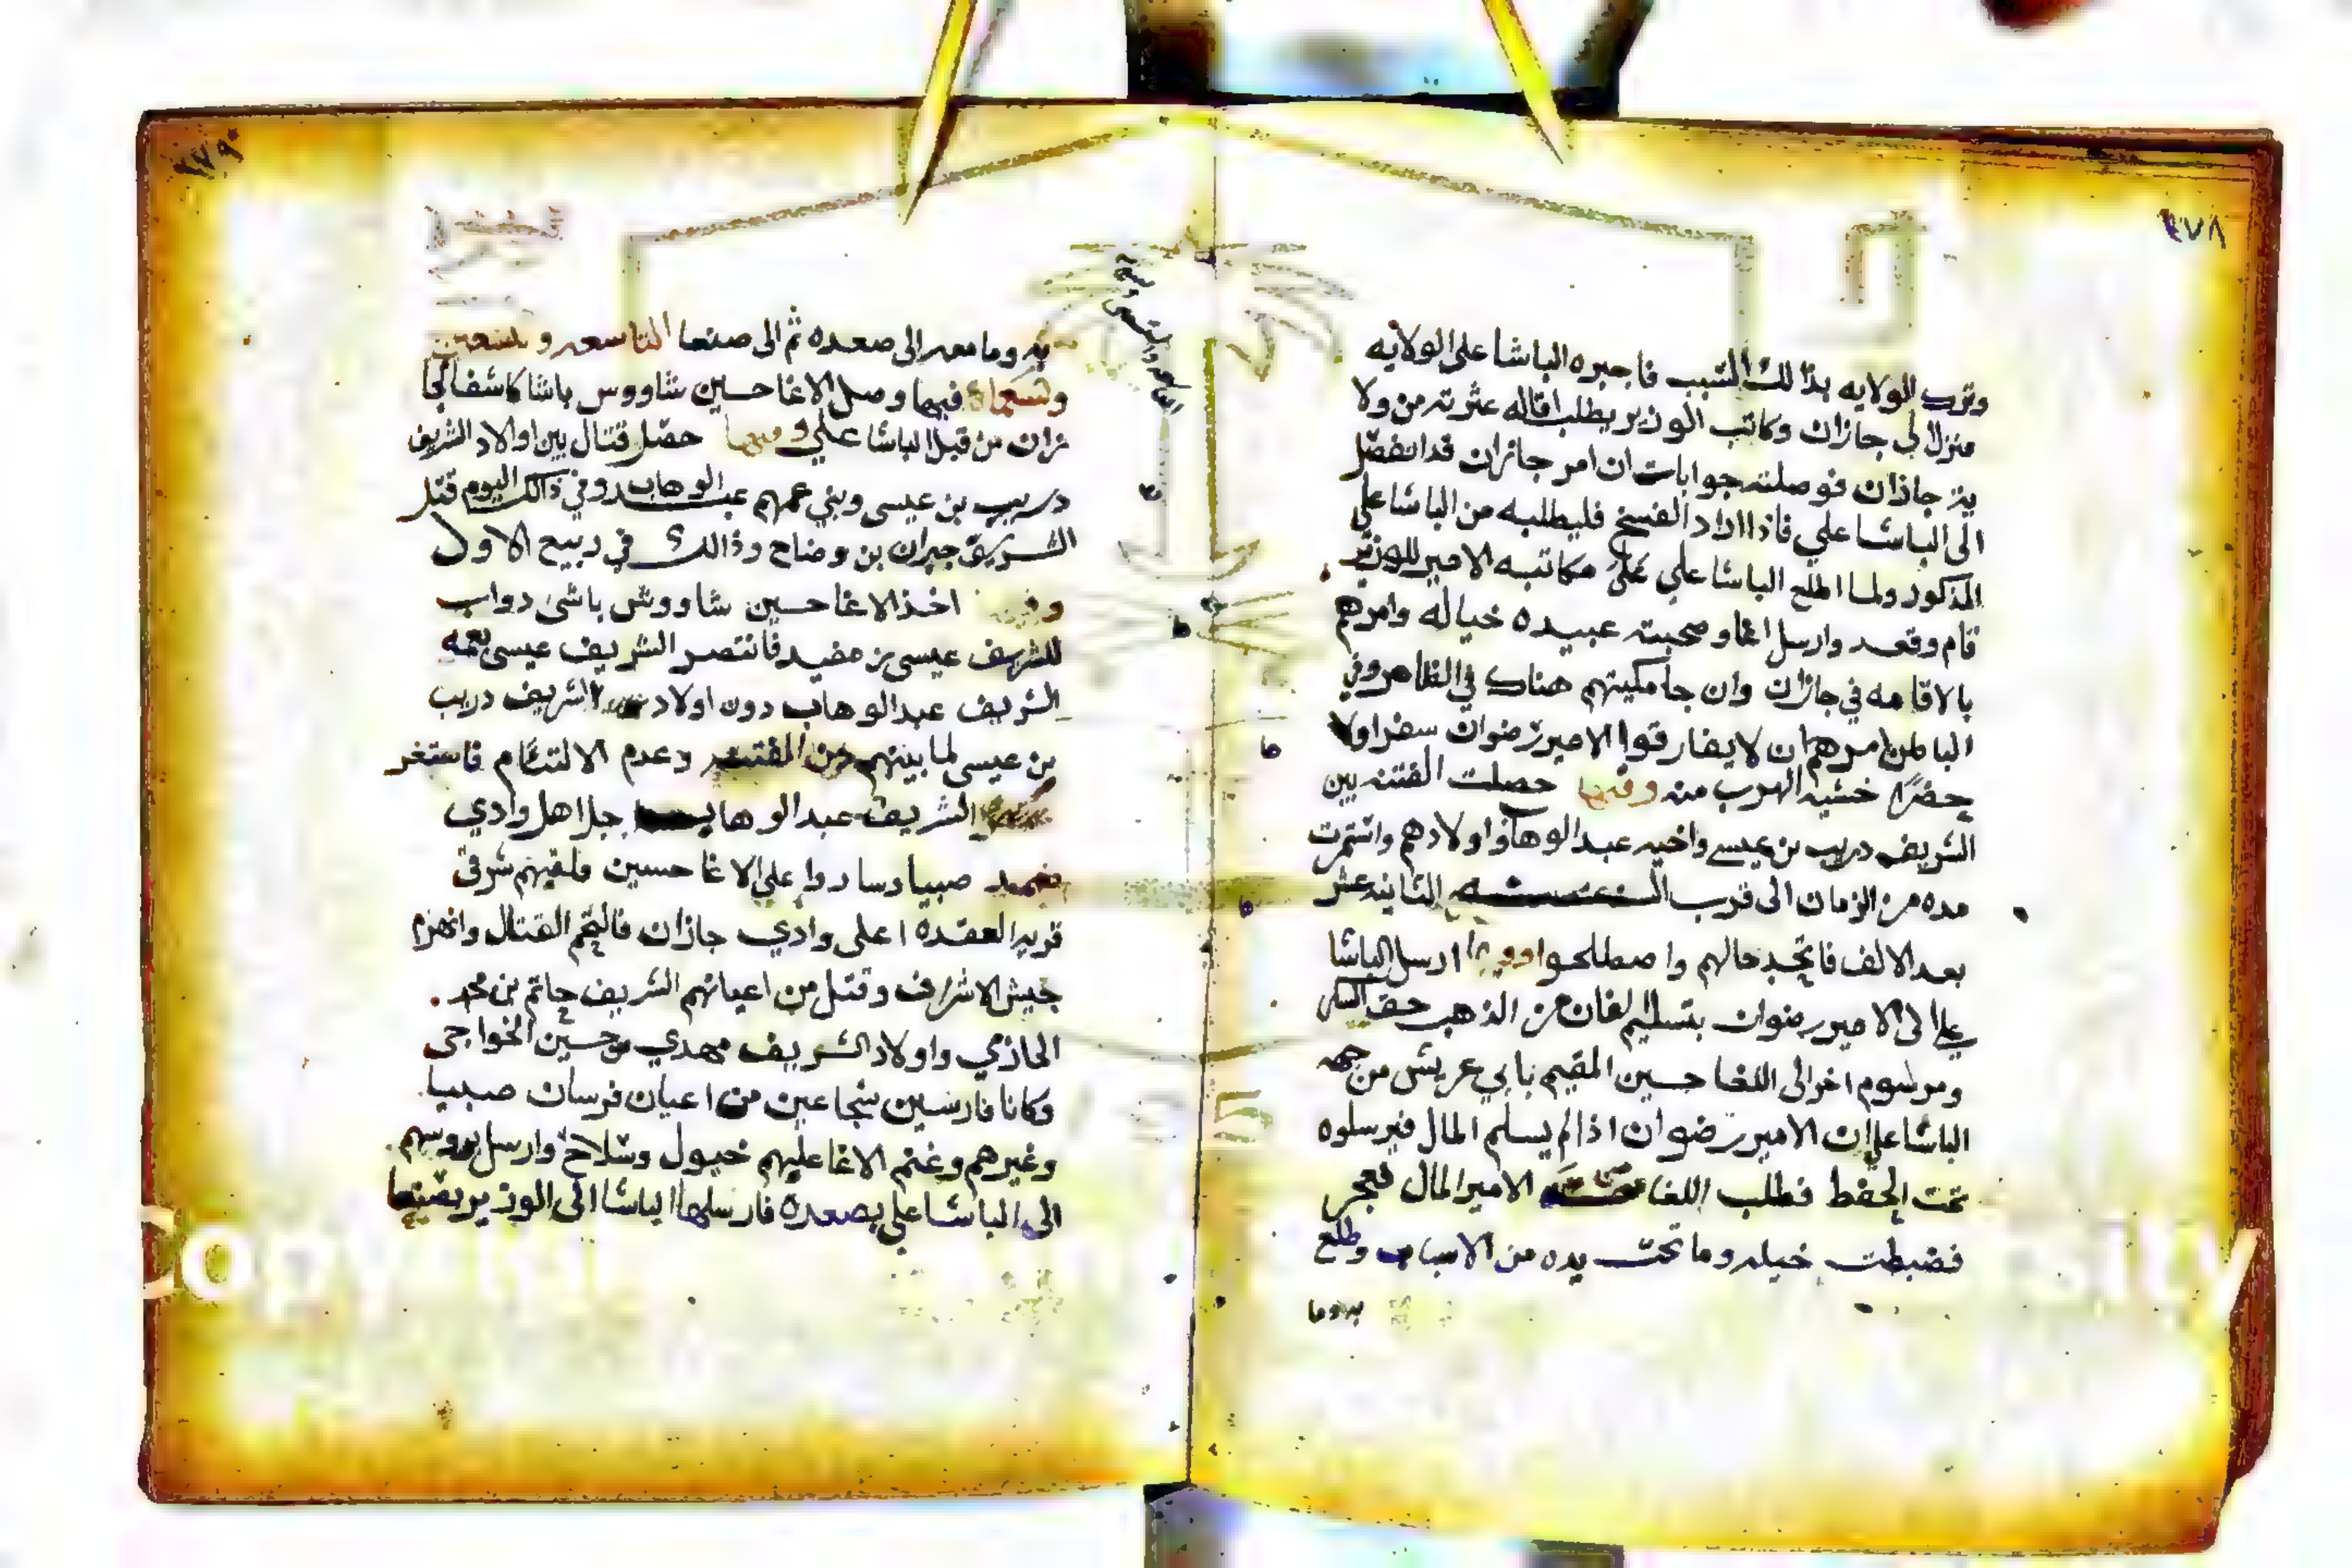 ٢٧٨
وترك الولايه بذالك السبب فاجبره الباشا على الولايه
منزلا لى جازان وكاتب الوزير يطلب اقاله عثرته من ولا
ية جاذان فوصلته جوابات ان امر جازان قد انفصل
الى الباشا علي فاذا اراد الفسخ فليطلبه من الباشا علي
المذكور ولما اطلع الباشا علي على مكاتبه الامير للوزير
قام وقعد وارسل اغا وصحبته عبيده خياله وامرهم
بالاقامه في جازان وان جامكيتهم هناك في الظاهر وفي
الباطن امرهم ان لا يفارقوا الامير رضوان سفرا ولا
حضرا خشية الهرب منه وفيها حصلت الفتنه بين
الشريف دريب بن عيسى واخيه عبدالوهاب واولادهم واستمرت
مده من الزمان الى قرب الثانيه عشر
بعد الالف فاتحد حالهم واصطلحوا وفيها ارسل الباشا
علي الى الامير رضوان بتسليم الفان من الذهب حق
ومرسوم اخر الى اللغا حسين المقيم بابي عريش من جهه
الباشا علي ان الامير رضوان اذا لم يسلم المال فيرسلوه
تحت الحفظ فطلب اللغا الامير المال فعجز
فضبطت خيله وما تحت يده من الاسباب وطلع
به وما
٢٧٩
به وما معه الى صعده ثم الى صنعا التاسعه وتسعين
وتسعمائة فيها وصل الاغا حسين شاووس باشا كاشفا لجا
زان من قبل الباشا علي وفيها حصل قتال بين اولاد الشريف
دريب بن عيسى وبني عمهم عبدالوهاب وفي ذالك اليوم قتل
الشريف جبران بن وضاح وذالك في ربيع الاول
وفيها اخذ الاغا حسين شاووش باشى دواب
للشريف عيسى بن مفيد فانتصر الشريف عيسى بعمه
الشريف عبدالوهاب دون اولاد الشريف دريب
بن عيسى لما بينهم من الفتنه وعدم الالتئام فاستغر
الشريف عبدالوهاب جل اهل وادي
ضمد صبيا وساروا على الاغا حسين فلقيهم شرقي
قرية العقده اعلى وادي جازان فالتحم القتال وانهزم
جيش الاشراف وقتل من اعيانهم الشريف حاتم بن محمد
الحازمي واولاد الشريف مهدي بن حسين الخواجى
وكانا فارسين شجاعين من اعيان فرسان صبيا
وغيرهم وغنم الاغا عليهم خيول وسلاح وارسل بروسهم
الى الباشا علي بصعده فارسلها الباشا الى الوزير بصنعا